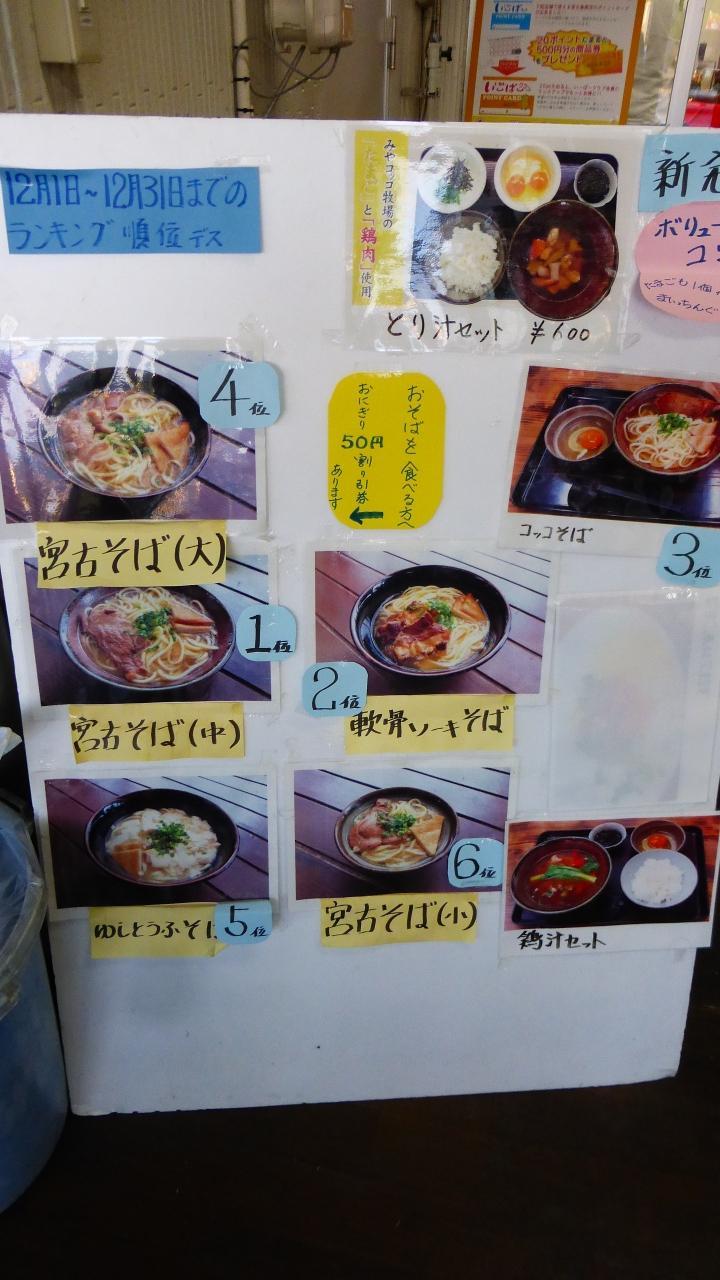 POINT CARD
20ポイントに達すると
500円分の商品券
をプレゼント
いこばこ
POINT CARD
12月1日~12月31日までの
ランキング順位デス
みやコッコ牧場の
「たまご」と「鶏肉」使用
とり汁セット ¥600
新
ボリュー
コ
たまごも1個
4位
宮古そば(大)
おそばを食べる方へ
おにぎり
50円
割り引券
あります
←
コッコそば
3位
1位
宮古そば(中)
2位
軟骨ソーキそば
ゆしとうふそば
5位
6位
宮古そば(小)
鶏汁セット